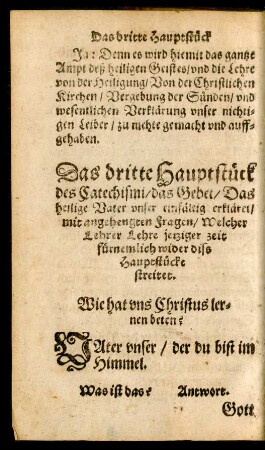 Das dritte Hauptstück
Ja: Denn es wird hiemit das gantze
Ampt deß heiligen Geistes/ vnd die Lehre
von der Heiligung/ Von der Christlichen
Kirchen/ Vergebung der Sünden/ vnd
wesentlichen Verklärung vnser nichti-
gen Leiber/ zu nichte gemacht vnd auff-
gehaben.
Das dritte Hauptstück
des Catechismi/ das Gebet/ Das
heilige Vater vnser einfältig erkläret/
mit angehengten Fragen/ Welcher
Lehrer Lehre jetziger zeit
fürnemlich wider diß
Hauptstücke
streitet.
Wie hat vns Christus ler-
nen beten?
VAter vnser/ der du bist im
Himmel.
Was ist das? Antwort.
Gott